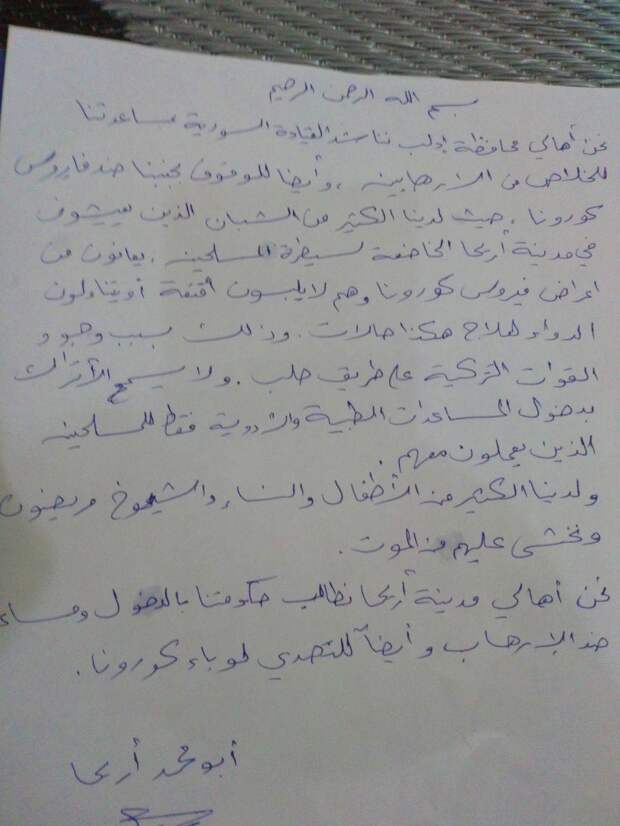 بسم الله الرحمن الرحيم
نحن أهالي محافظة إدلب نناشد القيادة السورية مساعدتنا
للخلاص من الارهابين ، وأيضا للوقوف بجنبنا ضد فايروس
كورونا . حيث لدينا الكثير من الشبان الذين يعيشون
في مدينة أريحا الخاضعة لسيطرة المسلحين . يعانون من
اعراض فيروس كورونا وهم لا يلبسون أقنعة أو يتناولون
الدواء لعلاج هكذا حالات . وذلك بسبب وجود
القوات التركية على طريق حلب . ولا يسمح الأتراك
بدخول المساعدات الطبية والأدوية فقط للمسلحين
الذين يعملون معهم .
ولدينا الكثير من الأطفال والنساء والشيوخ مريضون
ونخشى عليهم من الموت .
نحن أهالي مدينة أريحا نطالب حكومتنا بالدخول
ضد الإرهاب وأيضاً للتصدي لوباء كورونا .
أبو محمد أريحا